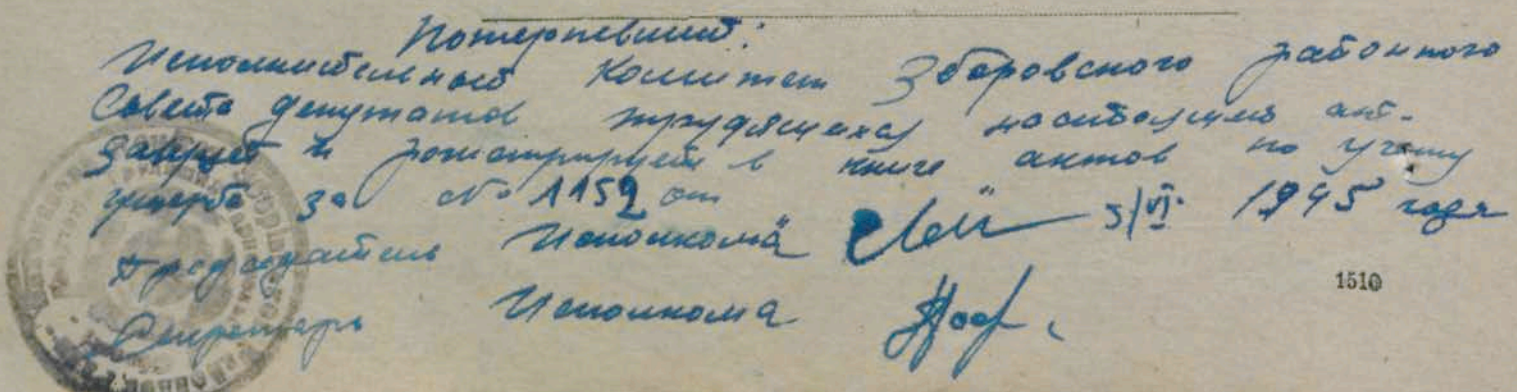 Потерпевший:
Исполнительный Комитет Зборовского районного
Совета депутатов трудящихся настоящий акт
и регистрирует в книге актов по учету
ущерба за № 1152 от
5/VI. 1945 года
Председатель Исполкома
Секретарь Исполкома
1510